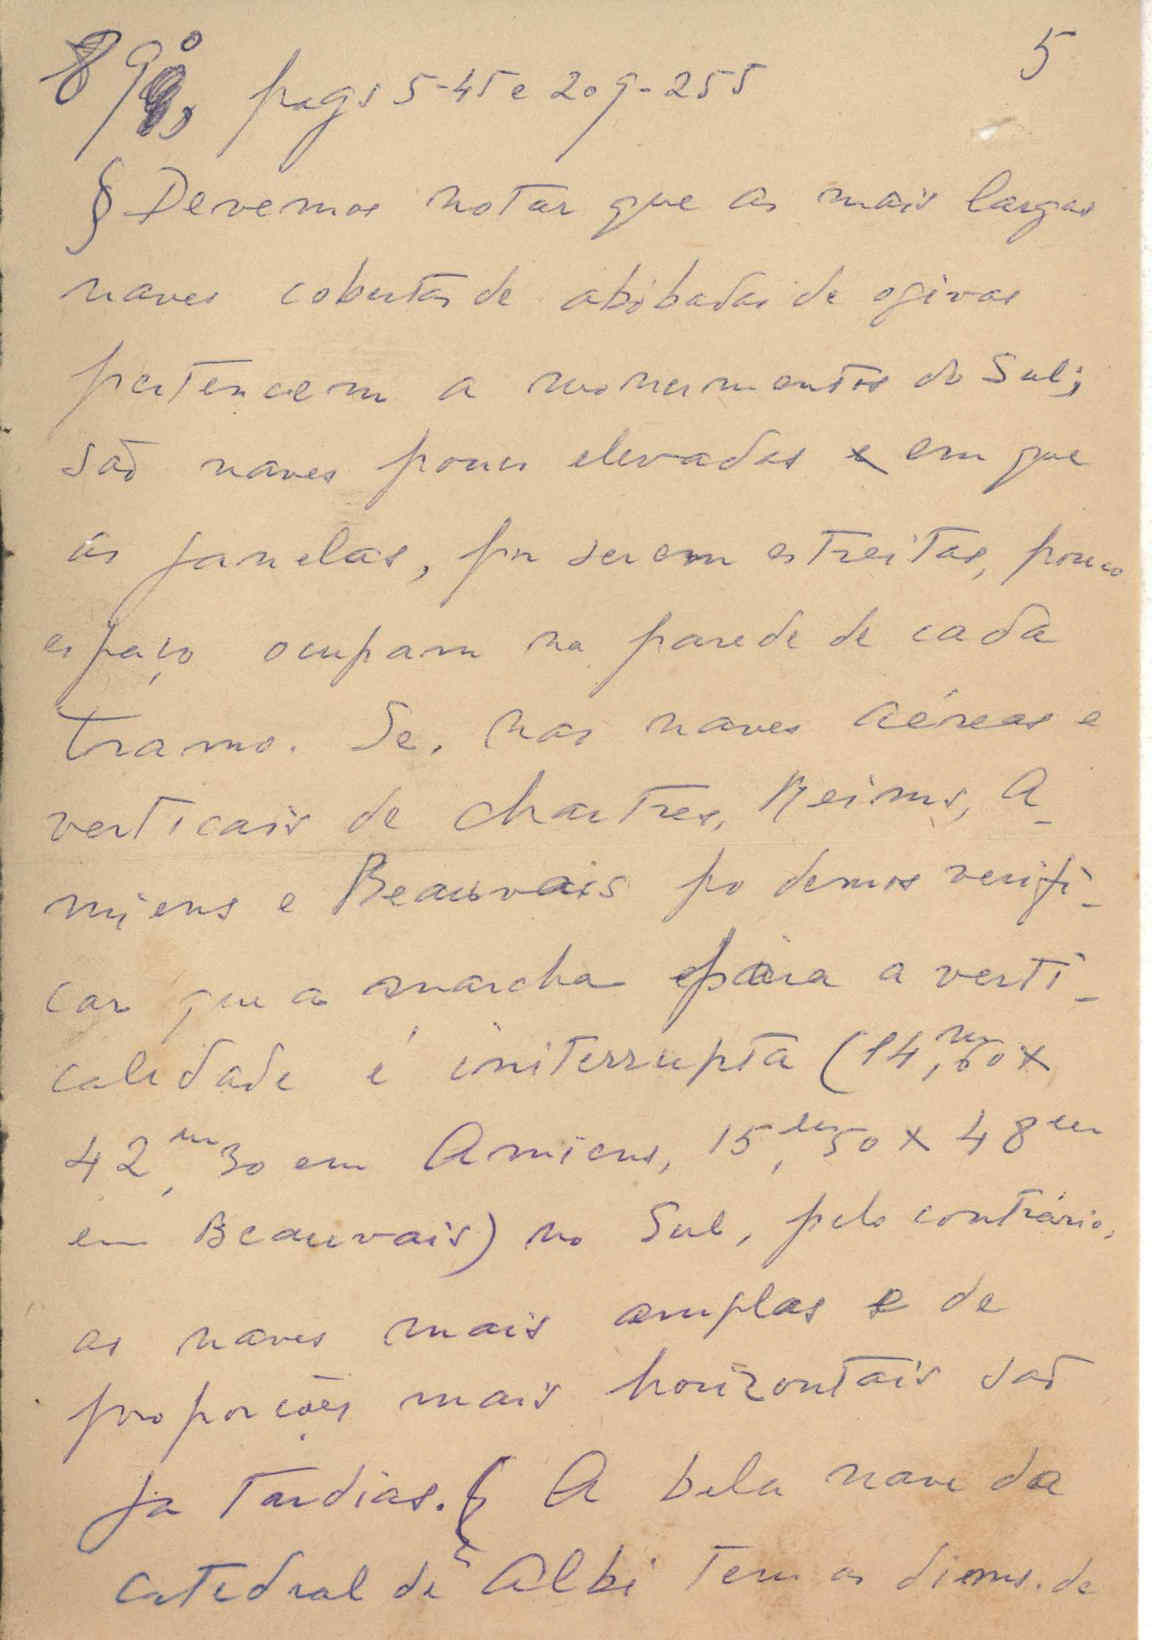 5
pags 5-45 e 209-255
§ Devemos notar que as mais largas
naves cobertas de abóbadas de ogivas
pertencem a monumentos do Sul;
são naves pouco elevadas em que
as janelas, por serem estreitas, pouco
espaço ocupam na parede de cada
tramo. Se, nas naves aéreas e
verticais de Chartres, Reims, A-
miens e Beauvais podemos verifi-
car que a marcha para a verti-
calidade é ininterrupta (14,m60 x
42,m30 em Amiens, 15,m50 x 48m
em Beauvais) no Sul, pelo contrário,
as naves mais amplas e de
proporções mais horizontais são
já tardias. § A bela nave da
catedral de Albi tem as dimens. de